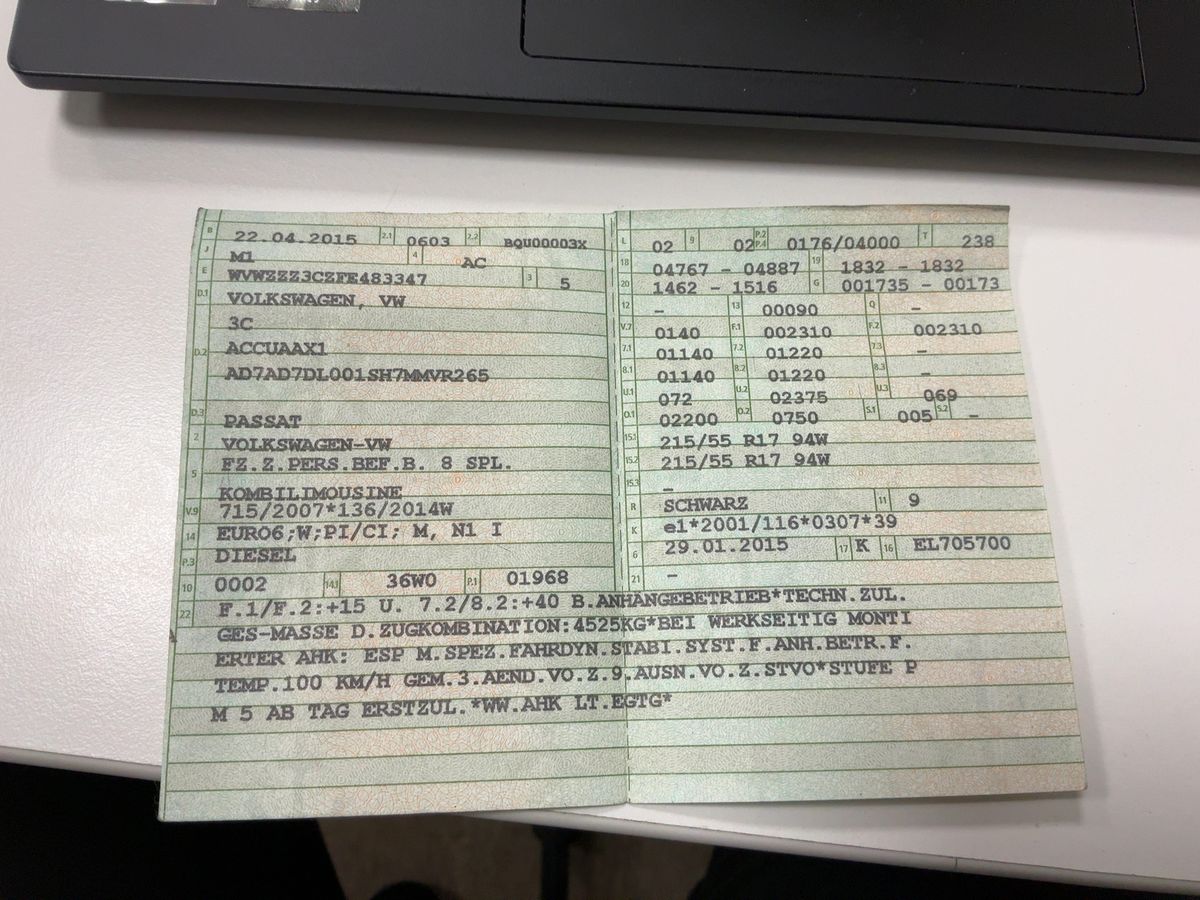 B 22.04.2015 2.1 0603 2.2 BQU00003X
J M1 4 AC
E WVWZZZ3CZFE483347 3 5
D.1 VOLKSWAGEN, VW
3C
D.2 ACCUAAX1
AD7AD7DL001SH7MMVR265
D.3 PASSAT
2 VOLKSWAGEN-VW
5 FZ.Z.PERS.BEF.B. 8 SPL.
KOMBILIMOUSINE
V.9 715/2007*136/2014W
14 EURO6;W;PI/CI; M, N1 I
P.3 DIESEL
10 0002 14.1 36W0 P.1 01968
L 02 9 02 P.2 P.4 0176/04000 T 238
18 04767 - 04887 19 1832 - 1832
20 1462 - 1516 G 001735 - 00173
12 - 13 00090 Q -
V.7 0140 F.1 002310 F.2 002310
7.1 01140 7.2 01220 7.3 -
8.1 01140 8.2 01220 8.3 -
U.1 072 U.2 02375 U.3 069
O.1 02200 O.2 0750 S.1 005 S.2 -
15.1 215/55 R17 94W
15.2 215/55 R17 94W
15.3 -
R SCHWARZ 11 9
K e1*2001/116*0307*39
6 29.01.2015 17 K 16 EL705700
21 -
22 F.1/F.2:+15 U. 7.2/8.2:+40 B.ANHÄNGEBETRIEB*TECHN.ZUL.
GES-MASSE D.ZUGKOMBINATION:4525KG*BEI WERKSEITIG MONTI
ERTER AHK: ESP M.SPEZ.FAHRDYN.STABI.SYST.F.ANH.BETR.F.
TEMP.100 KM/H GEM.3.AEND.VO.Z.9.AUSN.VO.Z.STVO*STUFE P
M 5 AB TAG ERSTZUL.*WW.AHK LT.EGTG*